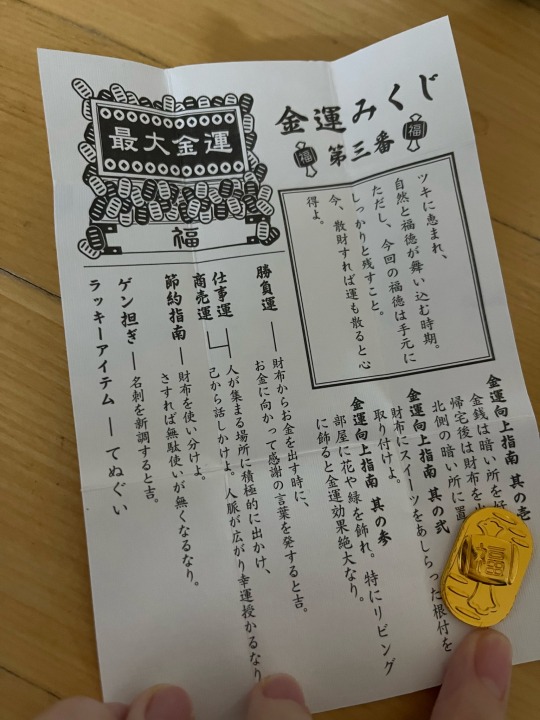 金運みくじ
福
第三番
福
最大金運
福
ツキに恵まれ、
自然と福徳が舞い込む時期。
ただし、今回の福徳は手元に
しっかりと残すこと。
今、散財すれば運も散ると心
得よ。
金運向上指南 其の壱
金銭は暗い所を好
帰宅後は財布を
北側の暗い所に置
金運向上指南 其の弐
財布にスイーツをあしらった根付を
取り付けよ。
金運向上指南 其の参
部屋に花や緑を飾れ。特にリビング
に飾ると金運効果絶大なり。
勝負運
財布からお金を出す時に、
お金に向かって感謝の言葉を発すると吉。
仕事運
商売運
人が集まる場所に積極的に出かけ、
己から話しかけよ。人脈が広がり幸運授かるなり
節約指南
財布を使い分けよ。
さすれば無駄使いが無くなるなり。
ゲン担ぎ
名刺を新調すると吉。
ラッキーアイテム
てぬぐい
福